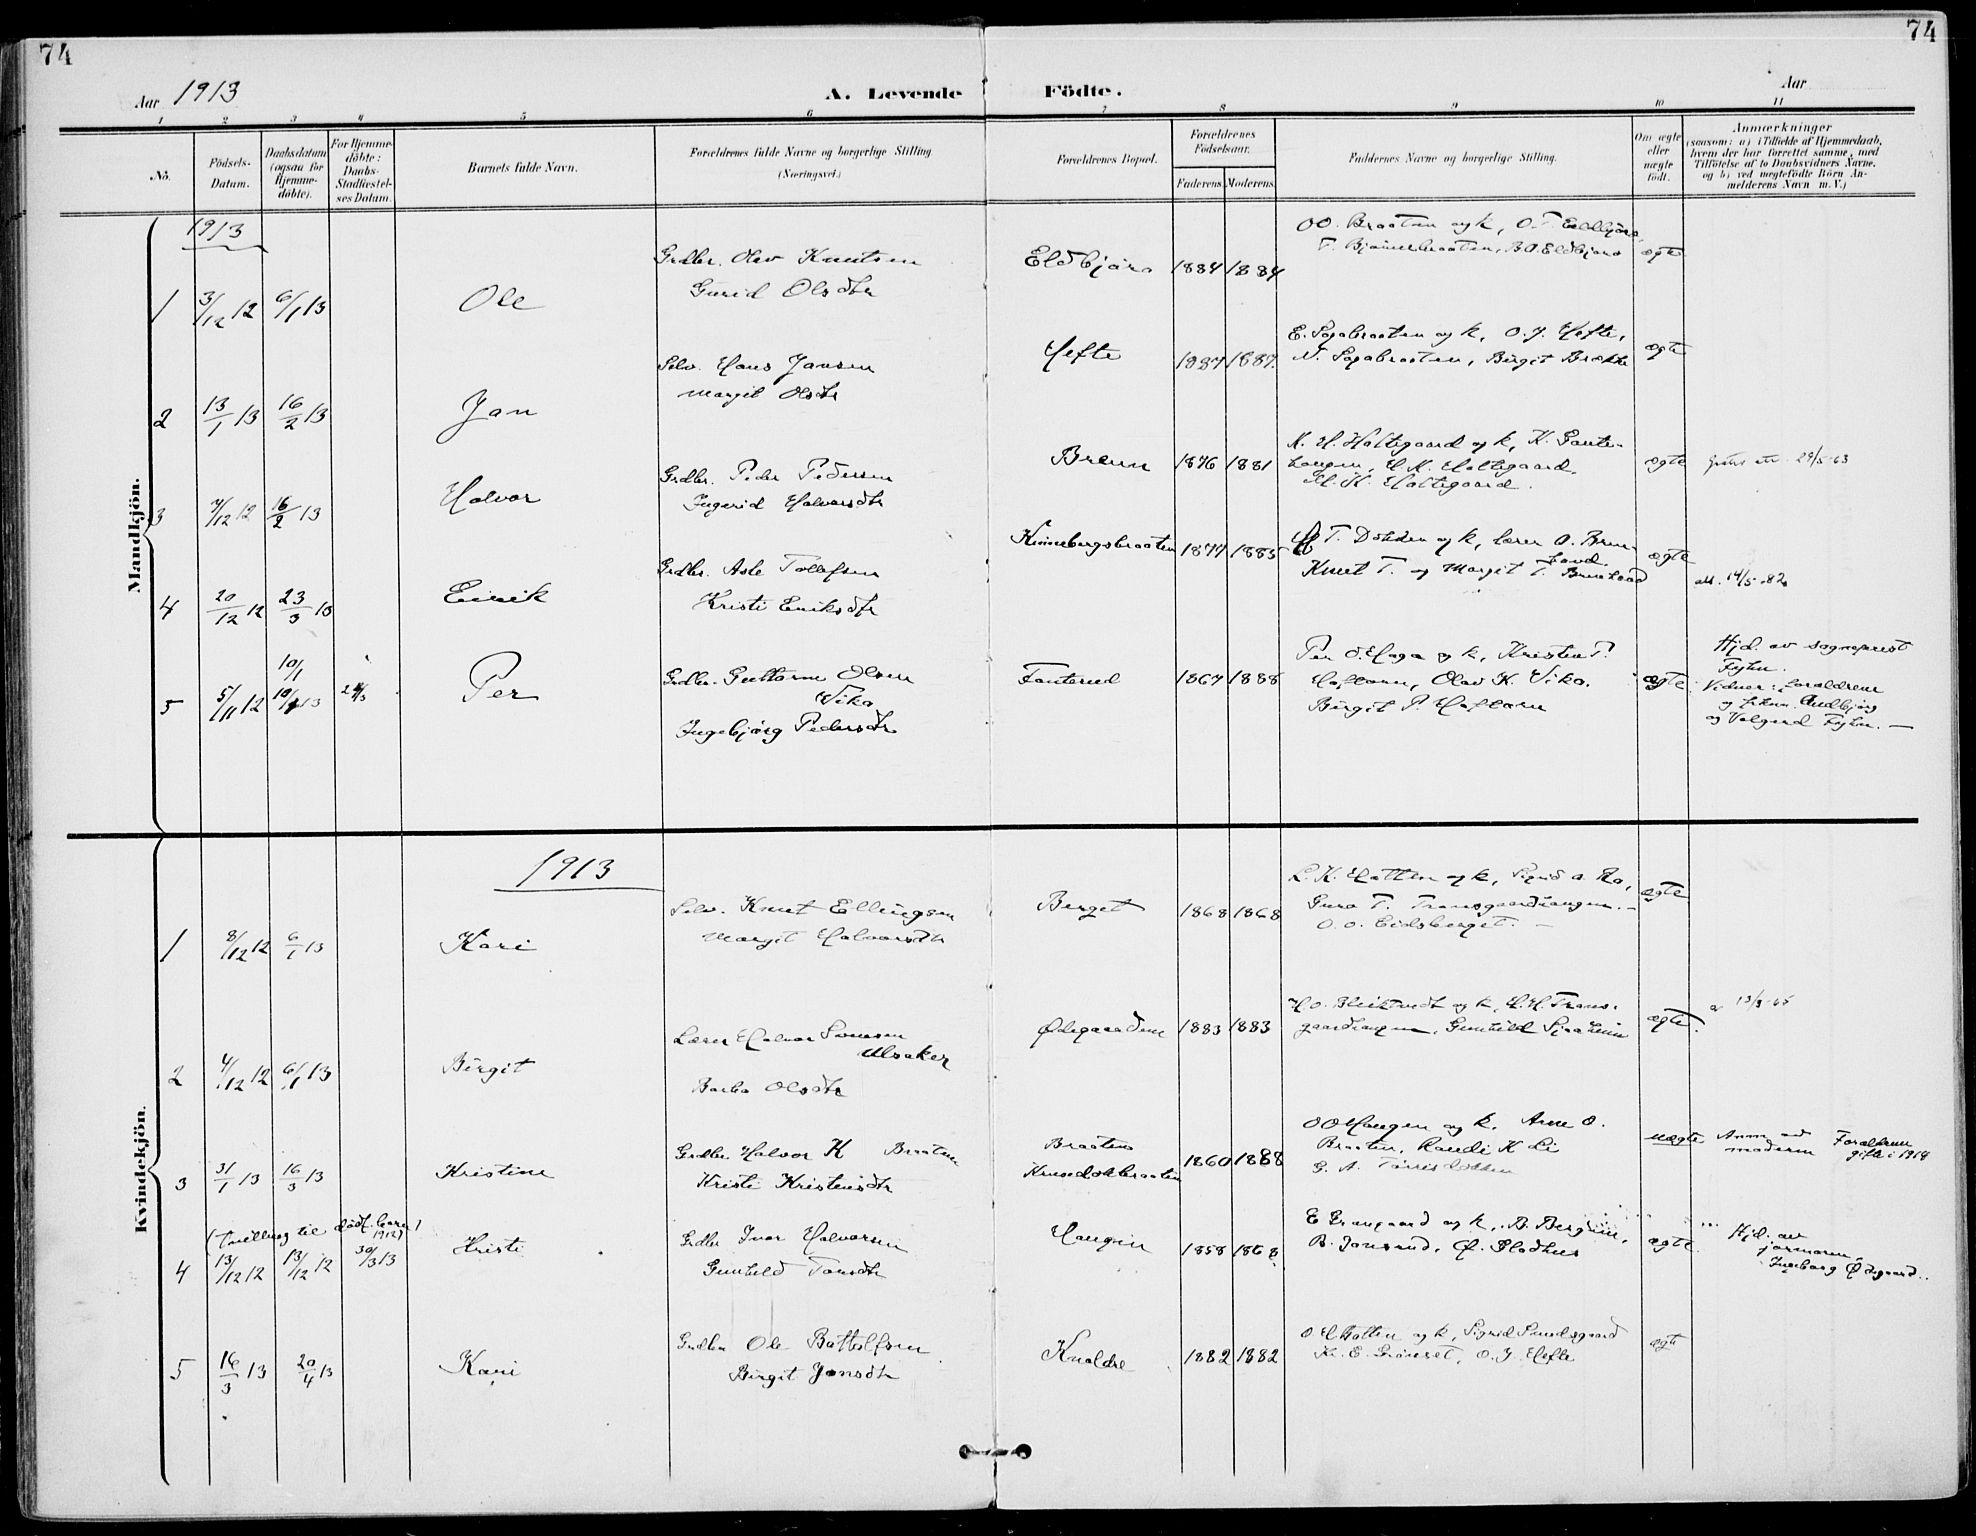 74
74
Aar 1913
A. Levende Födte.
Aar
1 2 3 4 5 6 7 8 9 10 11
No.
Födsels-Datum.
Daabsdatum (ogsaa for Hjemmedöbte).
For Hjemmedöbte: Daabs-Stadfæstelses Datum.
Barnets fulde Navn.
Forældrenes fulde Navne og borgerlige Stilling (Næringsvei.)
Forældrenes Bopæl.
Forældrenes Födselsaar.
Faderens. Moderens.
Faddernes Navne og borgerlige Stilling.
Om ægte eller uægte födt.
Anmærkninger
(saasom: a) i Tilfælde af Hjemmedaab, hvem der har forrettet samme, med Tilföielse af to Daabsvidners Navne. og b) ved uægtefödte Börn Anmelderens Navn m. V.)
Mandkjön.
1913
1 3/12 12 6/1 13 Ole
Grdbr. Olav Knutsen
Gurid Olsdtr
Eldbjörg 1884 1884
OO. Braaten og k, O. T. Eldbjörg,
T. Bjömerbraaten, B.O. Eldbjörg
ægte
2 13/1 13 16/2 13 Jan
Selv. Hans Jansen
Margit Olsdtr
Hefte 1887 1887.
E. Sagabraaten og k, O. J. Hefte,
N. Sagabraaten, Birgit Brække
ægte
3 7/12 12 16/2 13 Halvor
Grdbr. Peder Pedersen
Ingerid Halvorsdtr
Brenn 1876 1881
K. H. Holtegaard og k, K. Gaute-
haugen, H. K. Holtegaard,
M. K. Holtegaard.
ægte
29/5-63
4 20/12 12 23/3 13 Eirik
Grdbr. Asle Tollefsen
Kristi Eriksdtr
Kinnebergsbraaten 1877 1885
T. Dokken og k, lærer O. Bren-
Knut T. og Margit T.
ægte
att. 14/5-82
5 5/11 12 10/1 13 Per
Grdbr. Guttorm Olsen
Vika
Ingebjörg Pedersdtr
Fanterud 1867 1888
Per O. Haga og k, Kristen P.
Haftorn, Olav K. Vika.
Birgit P. Haftorn
ægte
Hjd. av sogneprest
Fyhn.
Vidner: foraldrene
og frkn. Gudbjörg
og Valgerd Fyhn. —
Kvindekjön.
1913
1 8/12 12 6/1 13 Kari
Selv. Knut Ellingsen
Margit Halvorsdtr
Berget 1868 1868
L. K. Hatten og k, Sigrid A. Ro,
Guro T. Transgaardhaugen. —
O. O. Eidsberget. —
ægte
2 4/12 12 6/1 13 Birgit
Lærer Halvor Svensen
Ulsaker
Barbo Olsdtr
Ødegaardene 1883 1883
H. O. Bleiktvedt og k, H. H. Trans-
gaardhaugen, Gunhild Sjaaheim
ægte.
13/3-65
3 31/1 13 16/3 13 Kristine
Grdbr. Halvor K Braaten
Kristi Kristensdtr
Braaten
1860 1888
O O Haugen og k, Arne O.
Braaten, Randi K Li
G. A. Törrisdokken
uægte
Anm. av
moderen
Foraldrene
gifte i 1914
(Tvilling til dödf. barn
1912)
4 13/12 12 13/12 12 30/3 13 Kristi
Grdbr Ivar Halvorsen
Gunhild Torsdtr
Haugen 1858 1868
E Grøngaard og k, B. Bergheim,
B. Jonsrud, O. Gladhus
ægte
Hjd. av
jormoren,
Ingeborg Ødegaard.
5 16/3 13 20/4 13 Kari
Grdbr Ole Bottolfsen
Birgit Jonsdtr
Knaldre 1882 1882
O. H. Hatten og k, Sigrid Sundsgaard
K. E. Grönset, O. J. Hefte
ægte